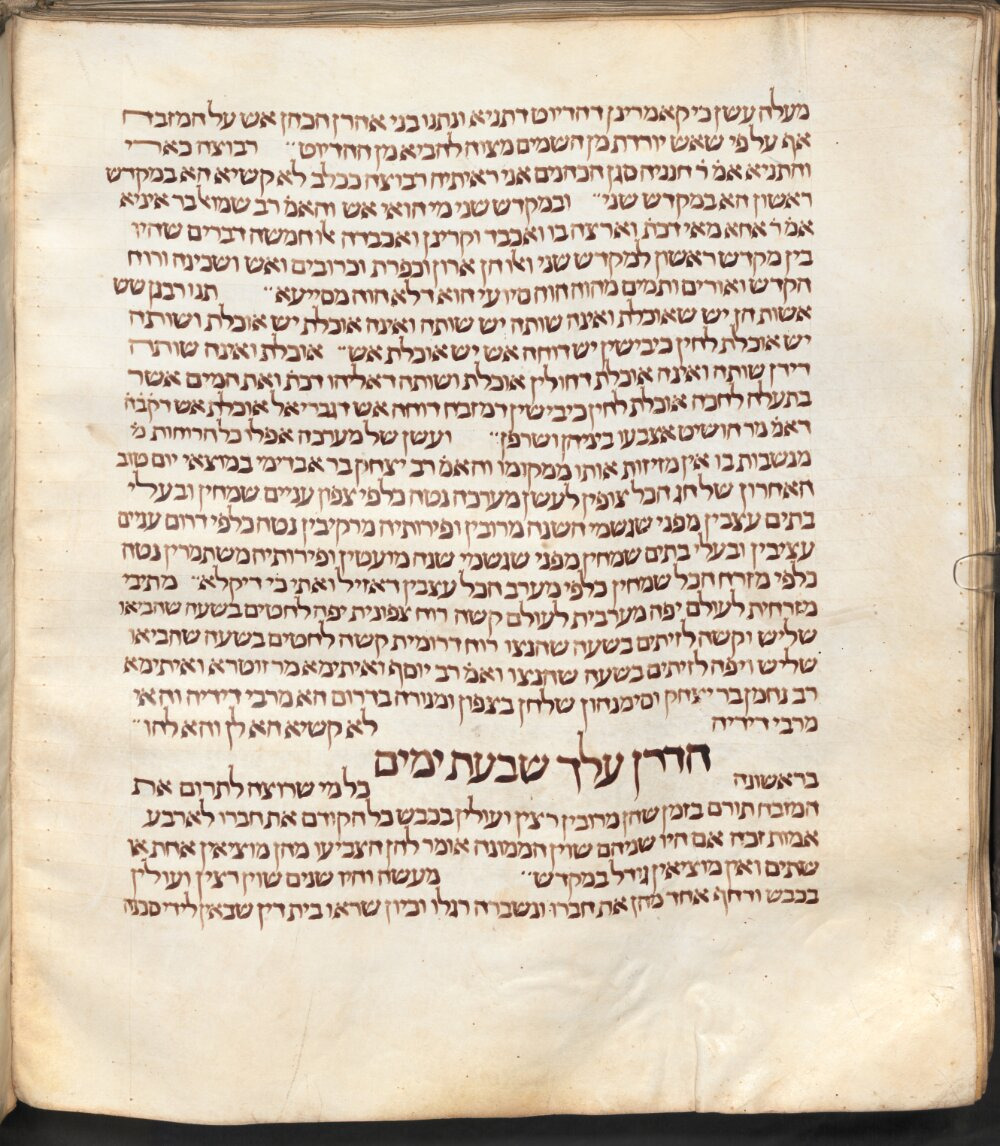 מעלה עשן כי קאמרינן דהדיוט דתניא ונתנו בני אהרן הכהן אש על המזבח
אף על פי שאש יורדת מן השמים מצוה להביא מן ההדיוט״ רבוצה כארי
והתניא אמ׳ ר׳ חנניה סגן הכהנים אני ראיתיה רבוצה ככלב לא קשיא הא במקדש
ראשון הא במקדש שני״ ובמקדש שני מי הואי אש והאמ׳ רב שמואל בר איניא
אמ׳ ר׳ אחא מאי דכת׳ וארצה בו ואכבד וקרינן ואכבדה אלו חמשה דברים שהיו
בין מקדש ראשון למקדש שני ואלו הן ארון וכפרת וכרובים ואש ושכינה ורוח
הקדש ואורים ותמים מהוה הוה סיועי הוא דלא הוה מסייעא״ תנו רבנן שש
אשות הן יש שאוכלת ואינה שותה יש שותה ואינה אוכלת יש אוכלת ושותה
יש אוכלת לחין כיבישין יש דוחה אש יש אוכלת אש״ אוכלת ואינה שותה
דידן שותה ואינה אוכלת דחולין אוכלת ושותה דאליהו דכת׳ ואת המים אשר
בתעלה לחכה אוכלת לחין כיבישין דמזבח דוחה אש דגבריאל אוכלת אש דקב׳ה
דאמ׳ מר הושיט אצבעו ביניהן ושרפן״ ועשן של מערכה אפלו כל הרוחות מ׳
מנשבות בו אין מזיזות אותו ממקומו והאמ׳ רב יצחק בר אבדימי במוצאי יום טוב
האחרון של חג הכל צופין לעשן מערכה נטה כלפי צפון עניים שמחין ובעלי
בתים עצבין מפני שגשמי השנה מרובין ופירותיה מרקיבין נטה כלפי דרום ענים
עציבין ובעלי בתים שמחין מפני שגשמי שנה מועטין ופירותיה משתמרין נטה
כלפי מזרח הכל שמחין כלפי מערב הכל עצבין דאזיל ואתי כי דיקלא״ מתיבי
מזרחית לעולם יפה מערבית לעולם קשה רוח צפונית יפה לחטים בשעה שהביאו
שליש וקשה לזיתים בשעה שהנצו רוח דרומית קשה לחטים בשעה שהביאו
שליש ויפה לזיתים בשעה שהנצו ואמ׳ רב יוסף ואיתימא מר זוטרא ואיתימא
רב נחמן בר יצחק וסימנהון שלחן בצפון ומנורה בדרום הא מרבי דידיה והאי
מרבי דידיה לא קשיא הא לן והא להו״
הדרן עלך שבעת ימים
בראשונה כל מי שרוצה לתרום את
המזבח תורם בזמן שהן מרובין רצין ועולין בכבש כל הקודם את חברו לארבע
אמות זכה אם היו שניהם שוין הממונה אומר להן הצביעו מהן מוציאין אחת או
שתים ואין מוציאין גודל במקדש״ מעשה והיו שנים שוין רצין ועולין
בכבש ודחף אחד מהן את חברו ונשברה רגלו וכיון שראו בית דין שבאין לידי סכנה